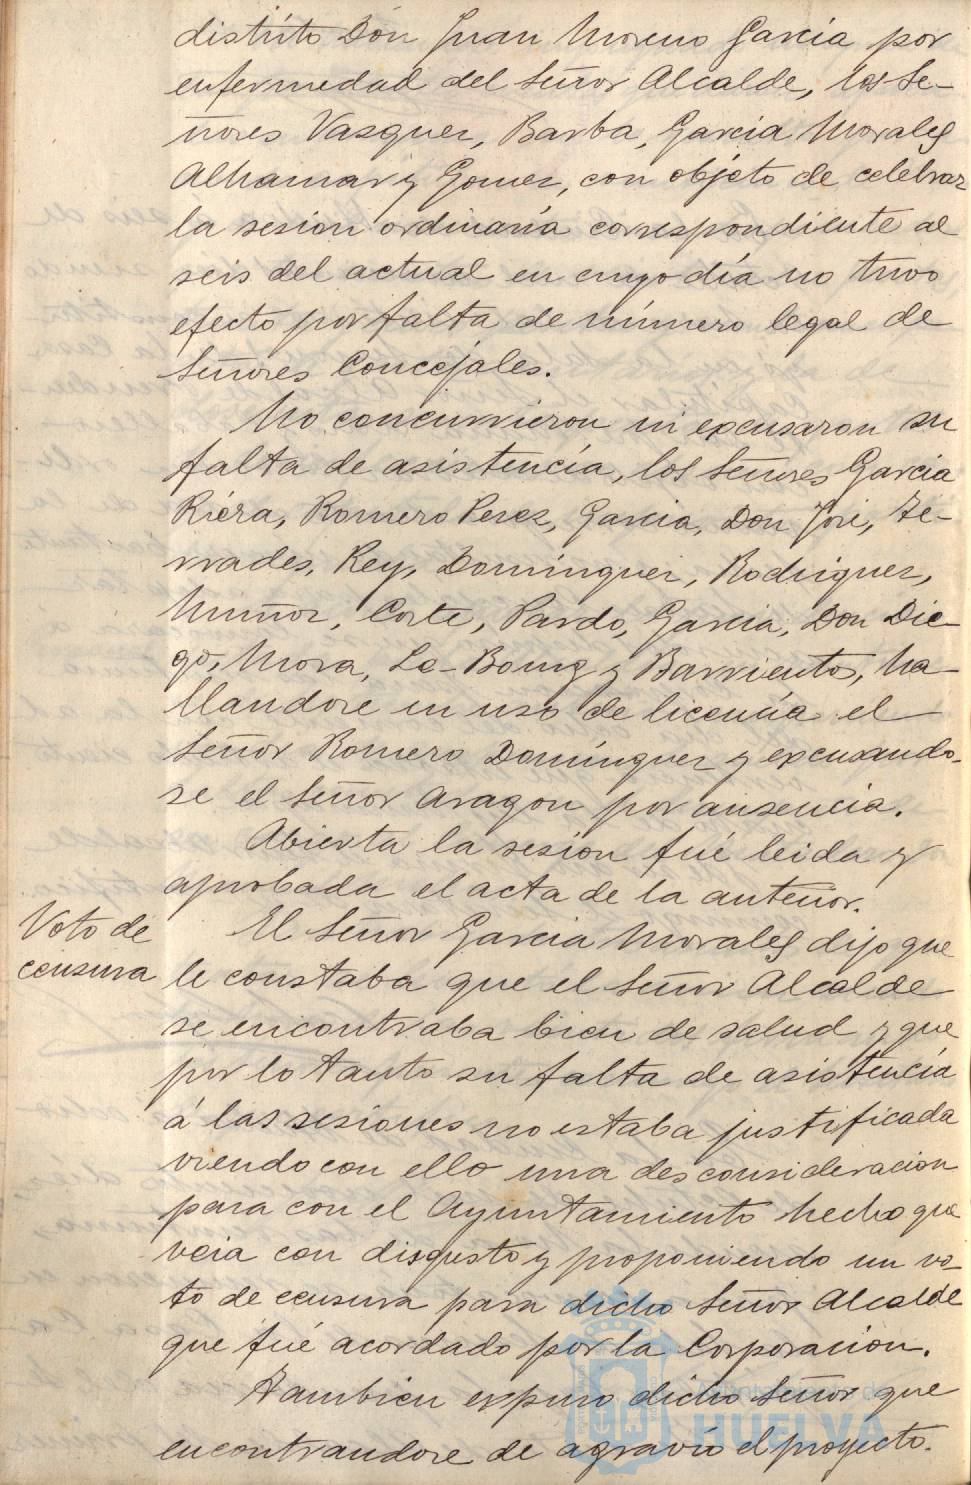 distrito Don Juan Moreno Garcia por
enfermedad del Señor Alcalde, los Se-
ñores Vazquez, Barba, Garcia Morales
Alhamar y Gomez, con objeto de celebrar
la sesion ordinaria correspondiente al
seis del actual en cuyo día no tuvo
efecto por falta de número legal de
Señores Concejales.
No concurrieron ni excusaron su
falta de asistencia, los Señores Garcia
Riera, Romero Perez, Garcia, Don José,
rrades, Rey, Domínguez, Rodriguez,
Muñoz, Corte, Pardo, Garcia, Don Die-
go, Mora, Le-Bourg y Barrientos, ha-
llandose en uso de licencia el
Señor Romero Domínguez y excusando-
se el Señor Aragon por ausencia.
Abierta la sesion fué leida y
aprobada el acta de la anterior.
Voto de
censura
El Señor Garcia Morales dijo que
le constaba que el Señor Alcalde
se encontraba bien de salud y que
por lo tanto su falta de asistencia
á las sesiones no estaba justificada
viendo con ello una desconsideracion
para con el Ayuntamiento hecho que
veia con disgusto y proponiendo un vo-
to de censura para dicho Señor Alcalde
que fué acordado por la Corporacion.
Tambien expuso dicho Señor que
encontrandose de agravio el proyecto.
Ayuntamiento de
HUELVA